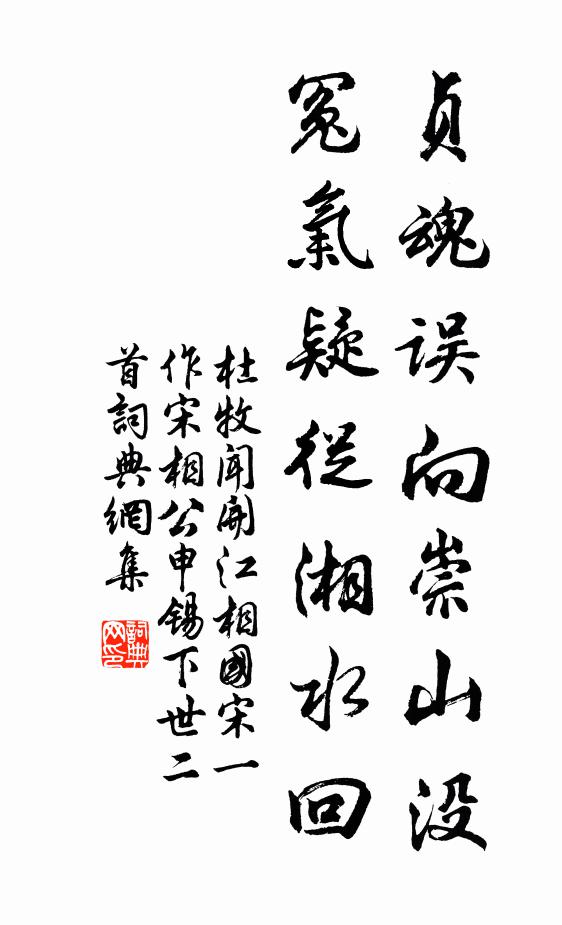 貞魂误向崇山没
冤氣疑從湘水回
杜牧闻開江相國宋一
作宋相公申锡下世二
首詞典網集
詞典
网印